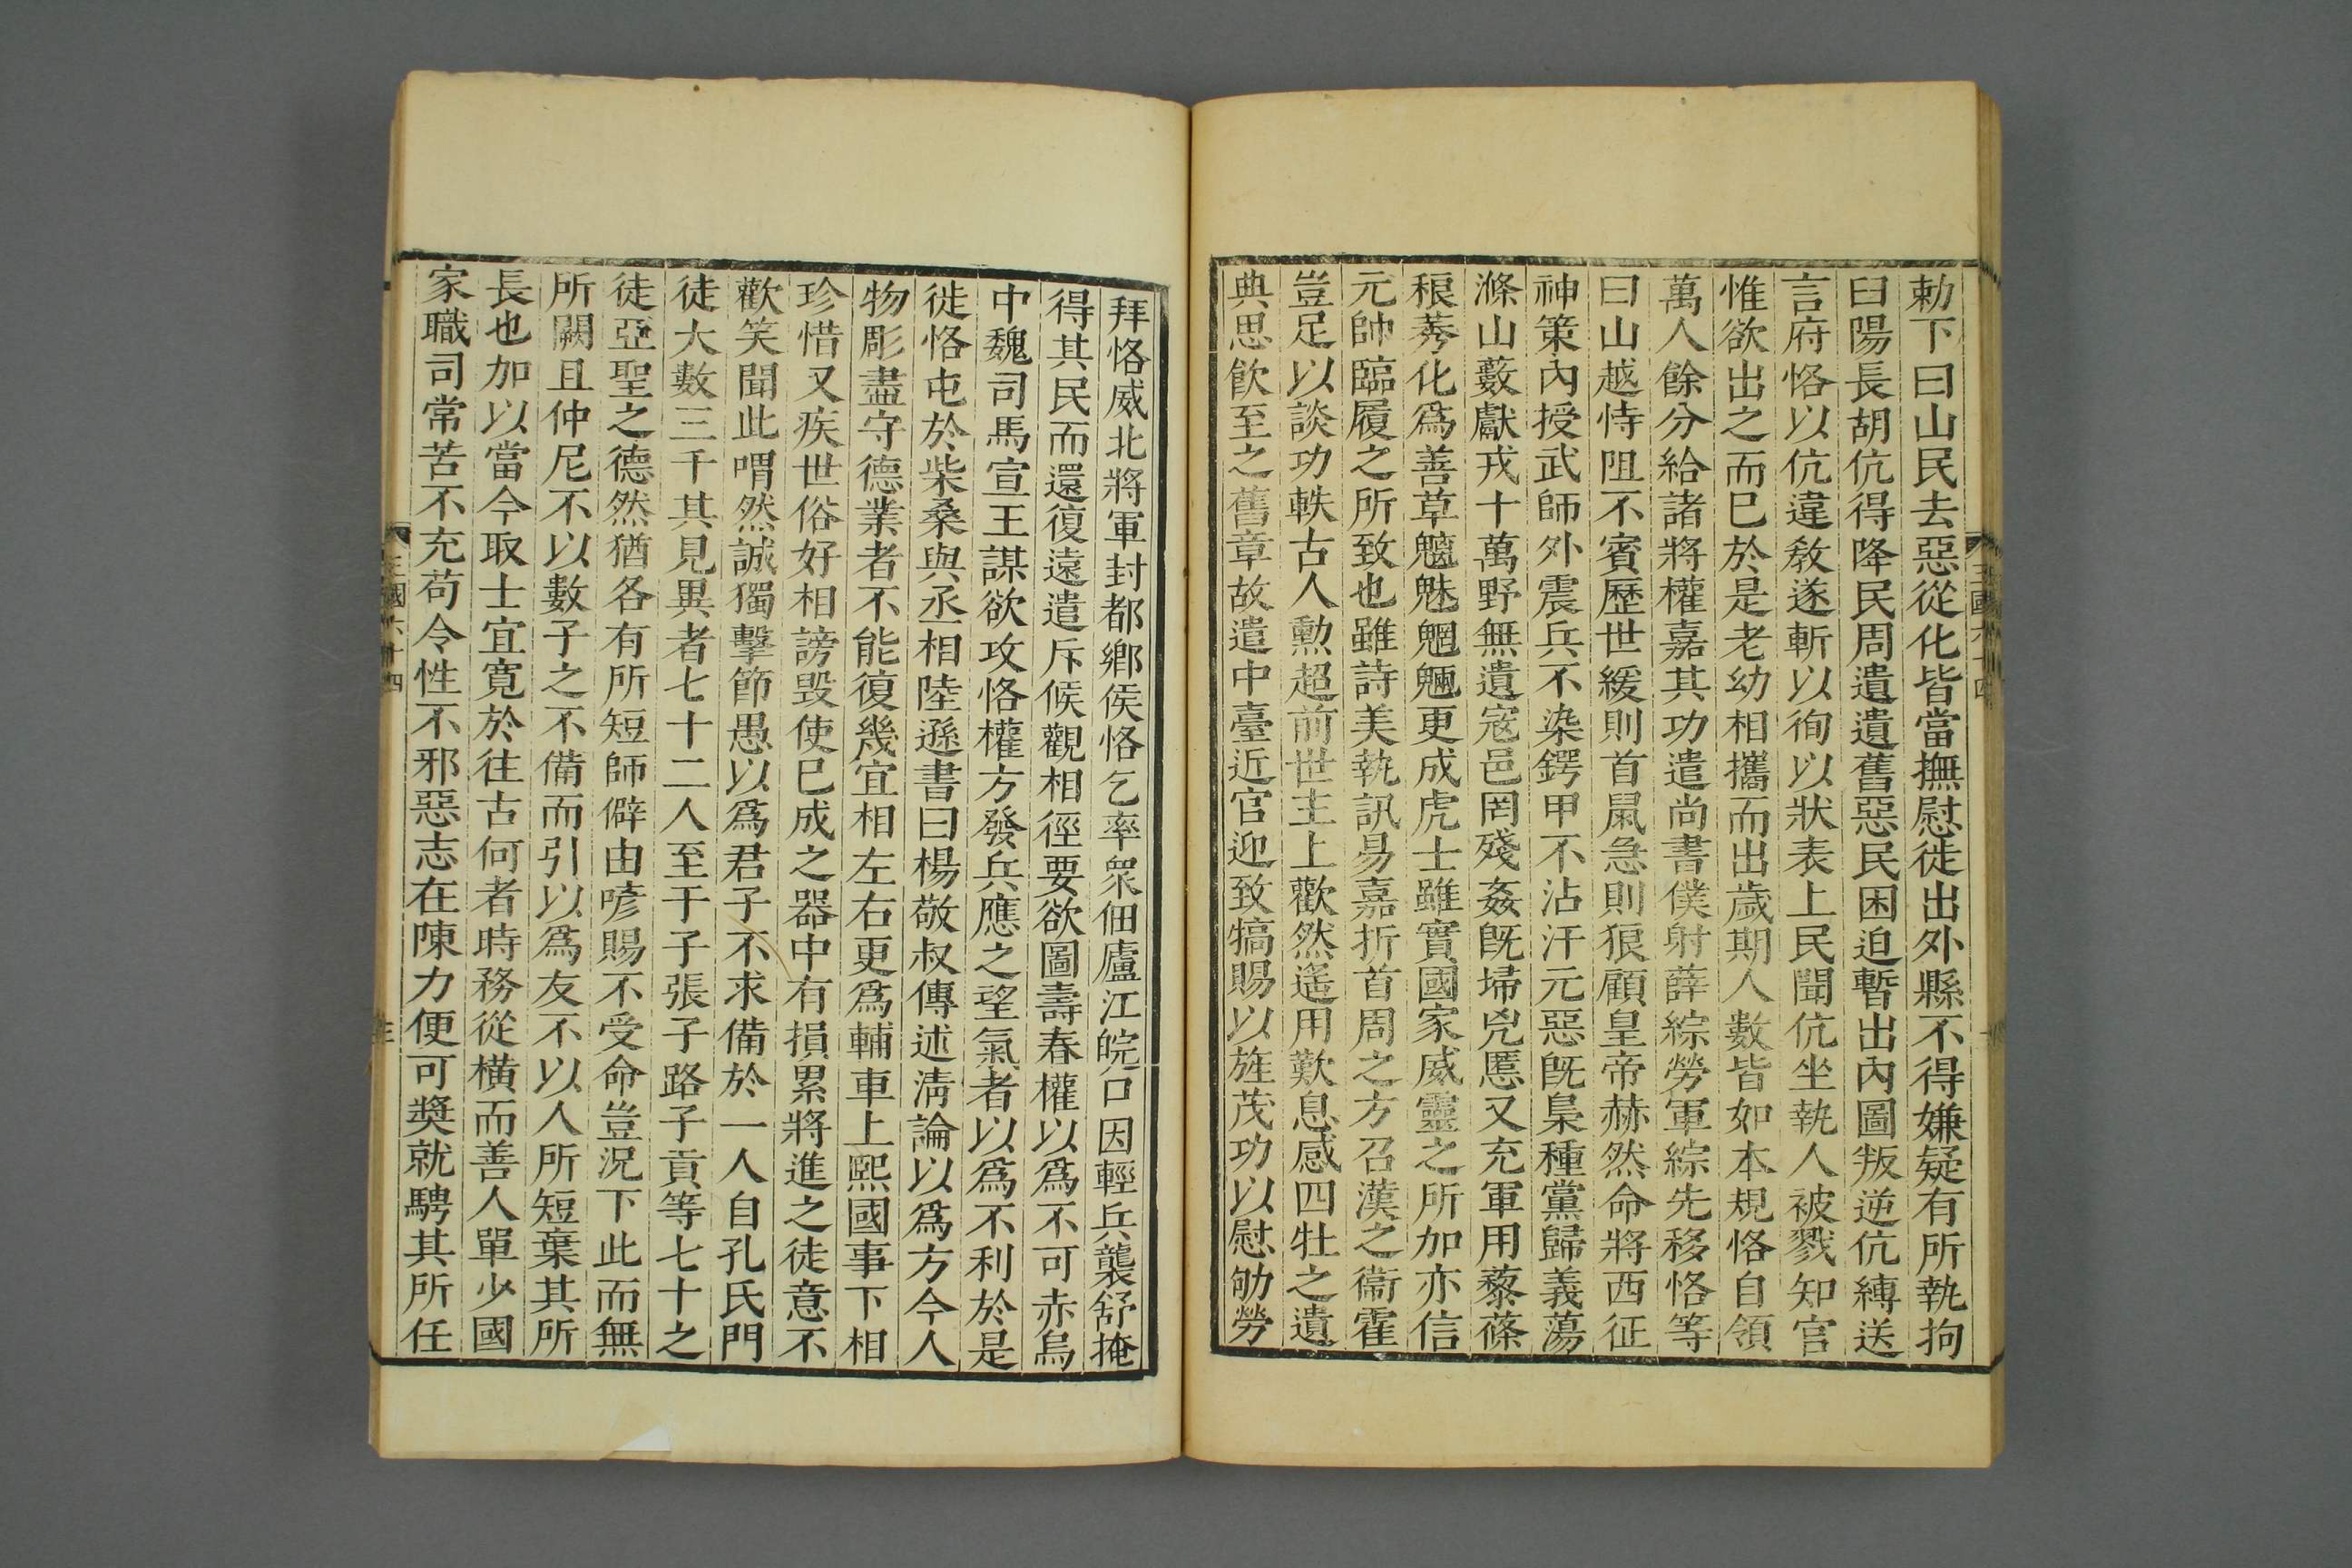 勅下曰山民去惡從化皆當撫慰徙出外縣不得嫌疑有所執拘
臼陽長胡伉得降民周遺遺舊惡民困迫暫出內圖叛逆伉縛送
言府恪以伉違敎遂斬以徇以狀表上民聞伉坐執人被戮知官
惟欲出之而巳於是老幼相攜而出歲期人數皆如本規恪自領
萬人餘分給諸將權嘉其功遣尚書僕射薛綜勞軍綜先移恪等
曰山越恃阻不賓歷世緩則首鼠急則狼顧皇帝赫然命將西征
神策內授武師外震兵不染鍔甲不沾汗元惡旣梟種黨歸義蕩
滌山藪獻戎十萬野無遺寇邑罔殘姦旣埽兇慝又充軍用藜蓧
稂莠化爲善草魑魅魍魎更成虎士雖實國家威靈之所加亦信
元帥臨履之所致也雖詩美執訊易嘉折首周之方召漢之衞霍
豈足以談功軼古人勲超前世主上歡然遙用歎息感四牡之遺
典思飮至之舊章故遣中臺近官迎致犒賜以旌茂功以慰劬勞
拜恪威北將軍封都鄉侯恪乞率衆佃廬江皖口因輕兵襲舒掩
得其民而還復遠遣斥候觀相徑要欲圖壽春權以爲不可赤烏
中魏司馬宣王謀欲攻恪權方發兵應之望氣者以爲不利於是
徙恪屯於柴桑與丞相陸遜書曰楊敬叔傳述淸論以爲方今人
物彫盡守德業者不能復幾宜相左右更爲輔車上熙國事下相
珍惜又疾世俗好相謗毀使巳成之器中有損累將進之徒意不
歡笑聞此喟然誠獨擊節愚以爲君子不求備於一人自孔氏門
徒大數三千其見異者七十二人至于子張子路子貢等七十之
徒亞聖之德然猶各有所短師僻由喭賜不受命豈況下此而無
所闕且仲尼不以數子之不備而引以爲友不以人所短棄其所
長也加以當今取士宜寬於往古何者時務從橫而善人單少國
家職司常苦不充苟令性不邪惡志在陳力便可獎就騁其所任
三國六十四
三